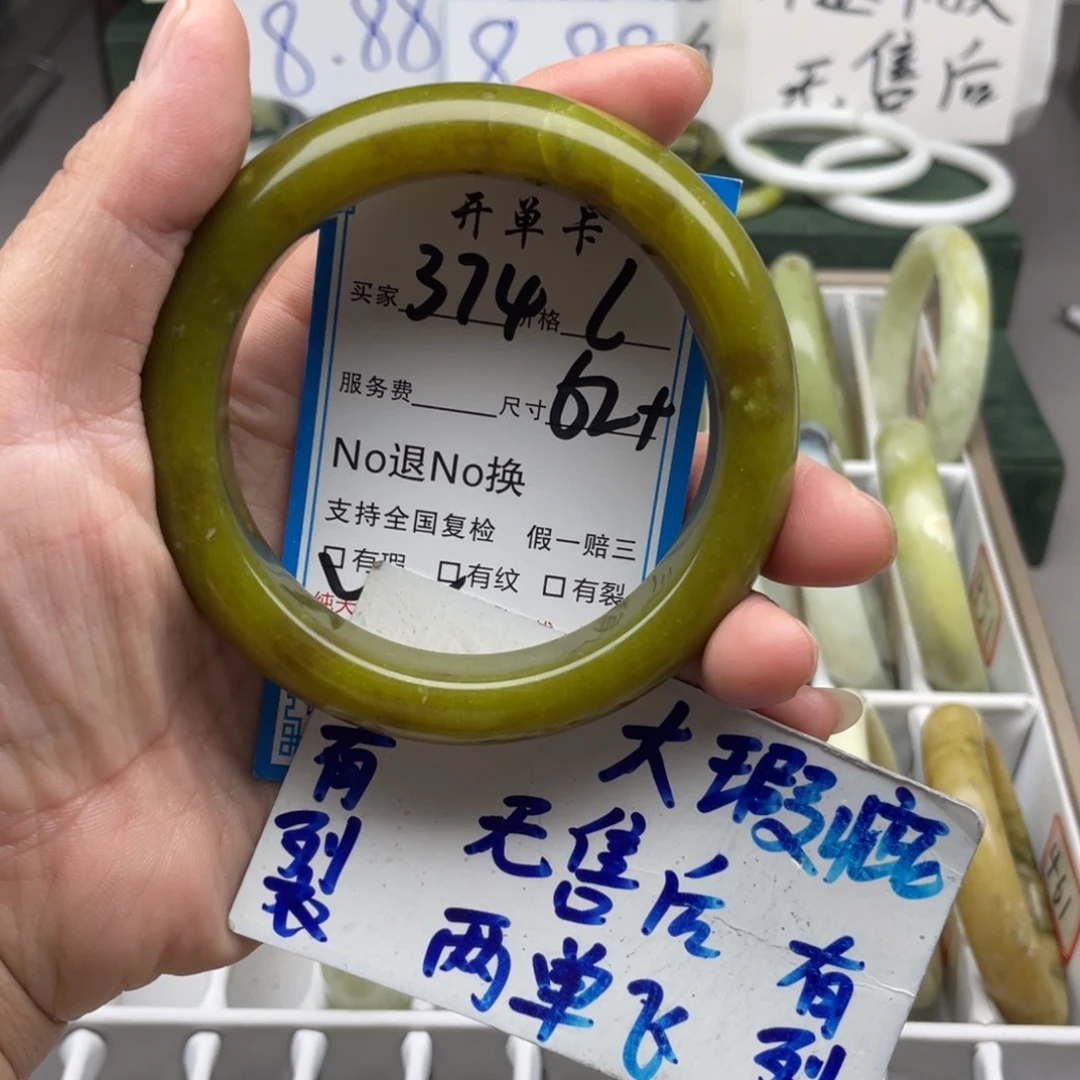 8.88
8.88
无售后
开单卡
买家 374 价格 L
服务费 尺寸 62+
No退No换
支持全国复检 假一赔三
有瑕 有纹 有裂
纯天
有裂
大瑕疵
无售后
两单飞
有裂
194